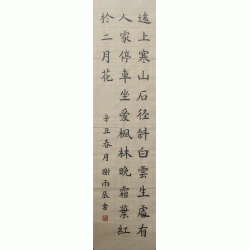 遠上寒山石径斜白雲生處有
人家停車坐愛楓林晚霜葉紅
於二月花
辛丑春月謝雨辰書